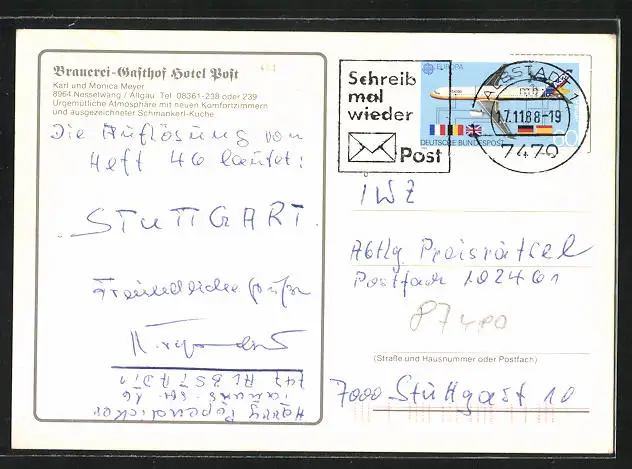 Brauerei-Gasthof Hotel Post
Karl und Monica Meyer
8964 Nesselwang / Allgäu Tel. 08361-238 oder 239
Urgemütliche Atmosphäre mit neuen Komfortzimmern
und ausgezeichneter Schmankerl-Küche
Die Auflösung von
Heft 46 lautet:
STUTTGART.
Freundliche Grüße
Harry Papendicker
747 ALBSTADT 1
Schreib
mal
wieder
Post
EUROPA
DEUTSCHE BUNDESPOST
60
ALBSTADT 1
17.11.88-19
7470
IWZ
Abtlg. Preisrätsel
Postfach 102461
87400
(Straße und Hausnummer oder Postfach)
7000 Stuttgart 10